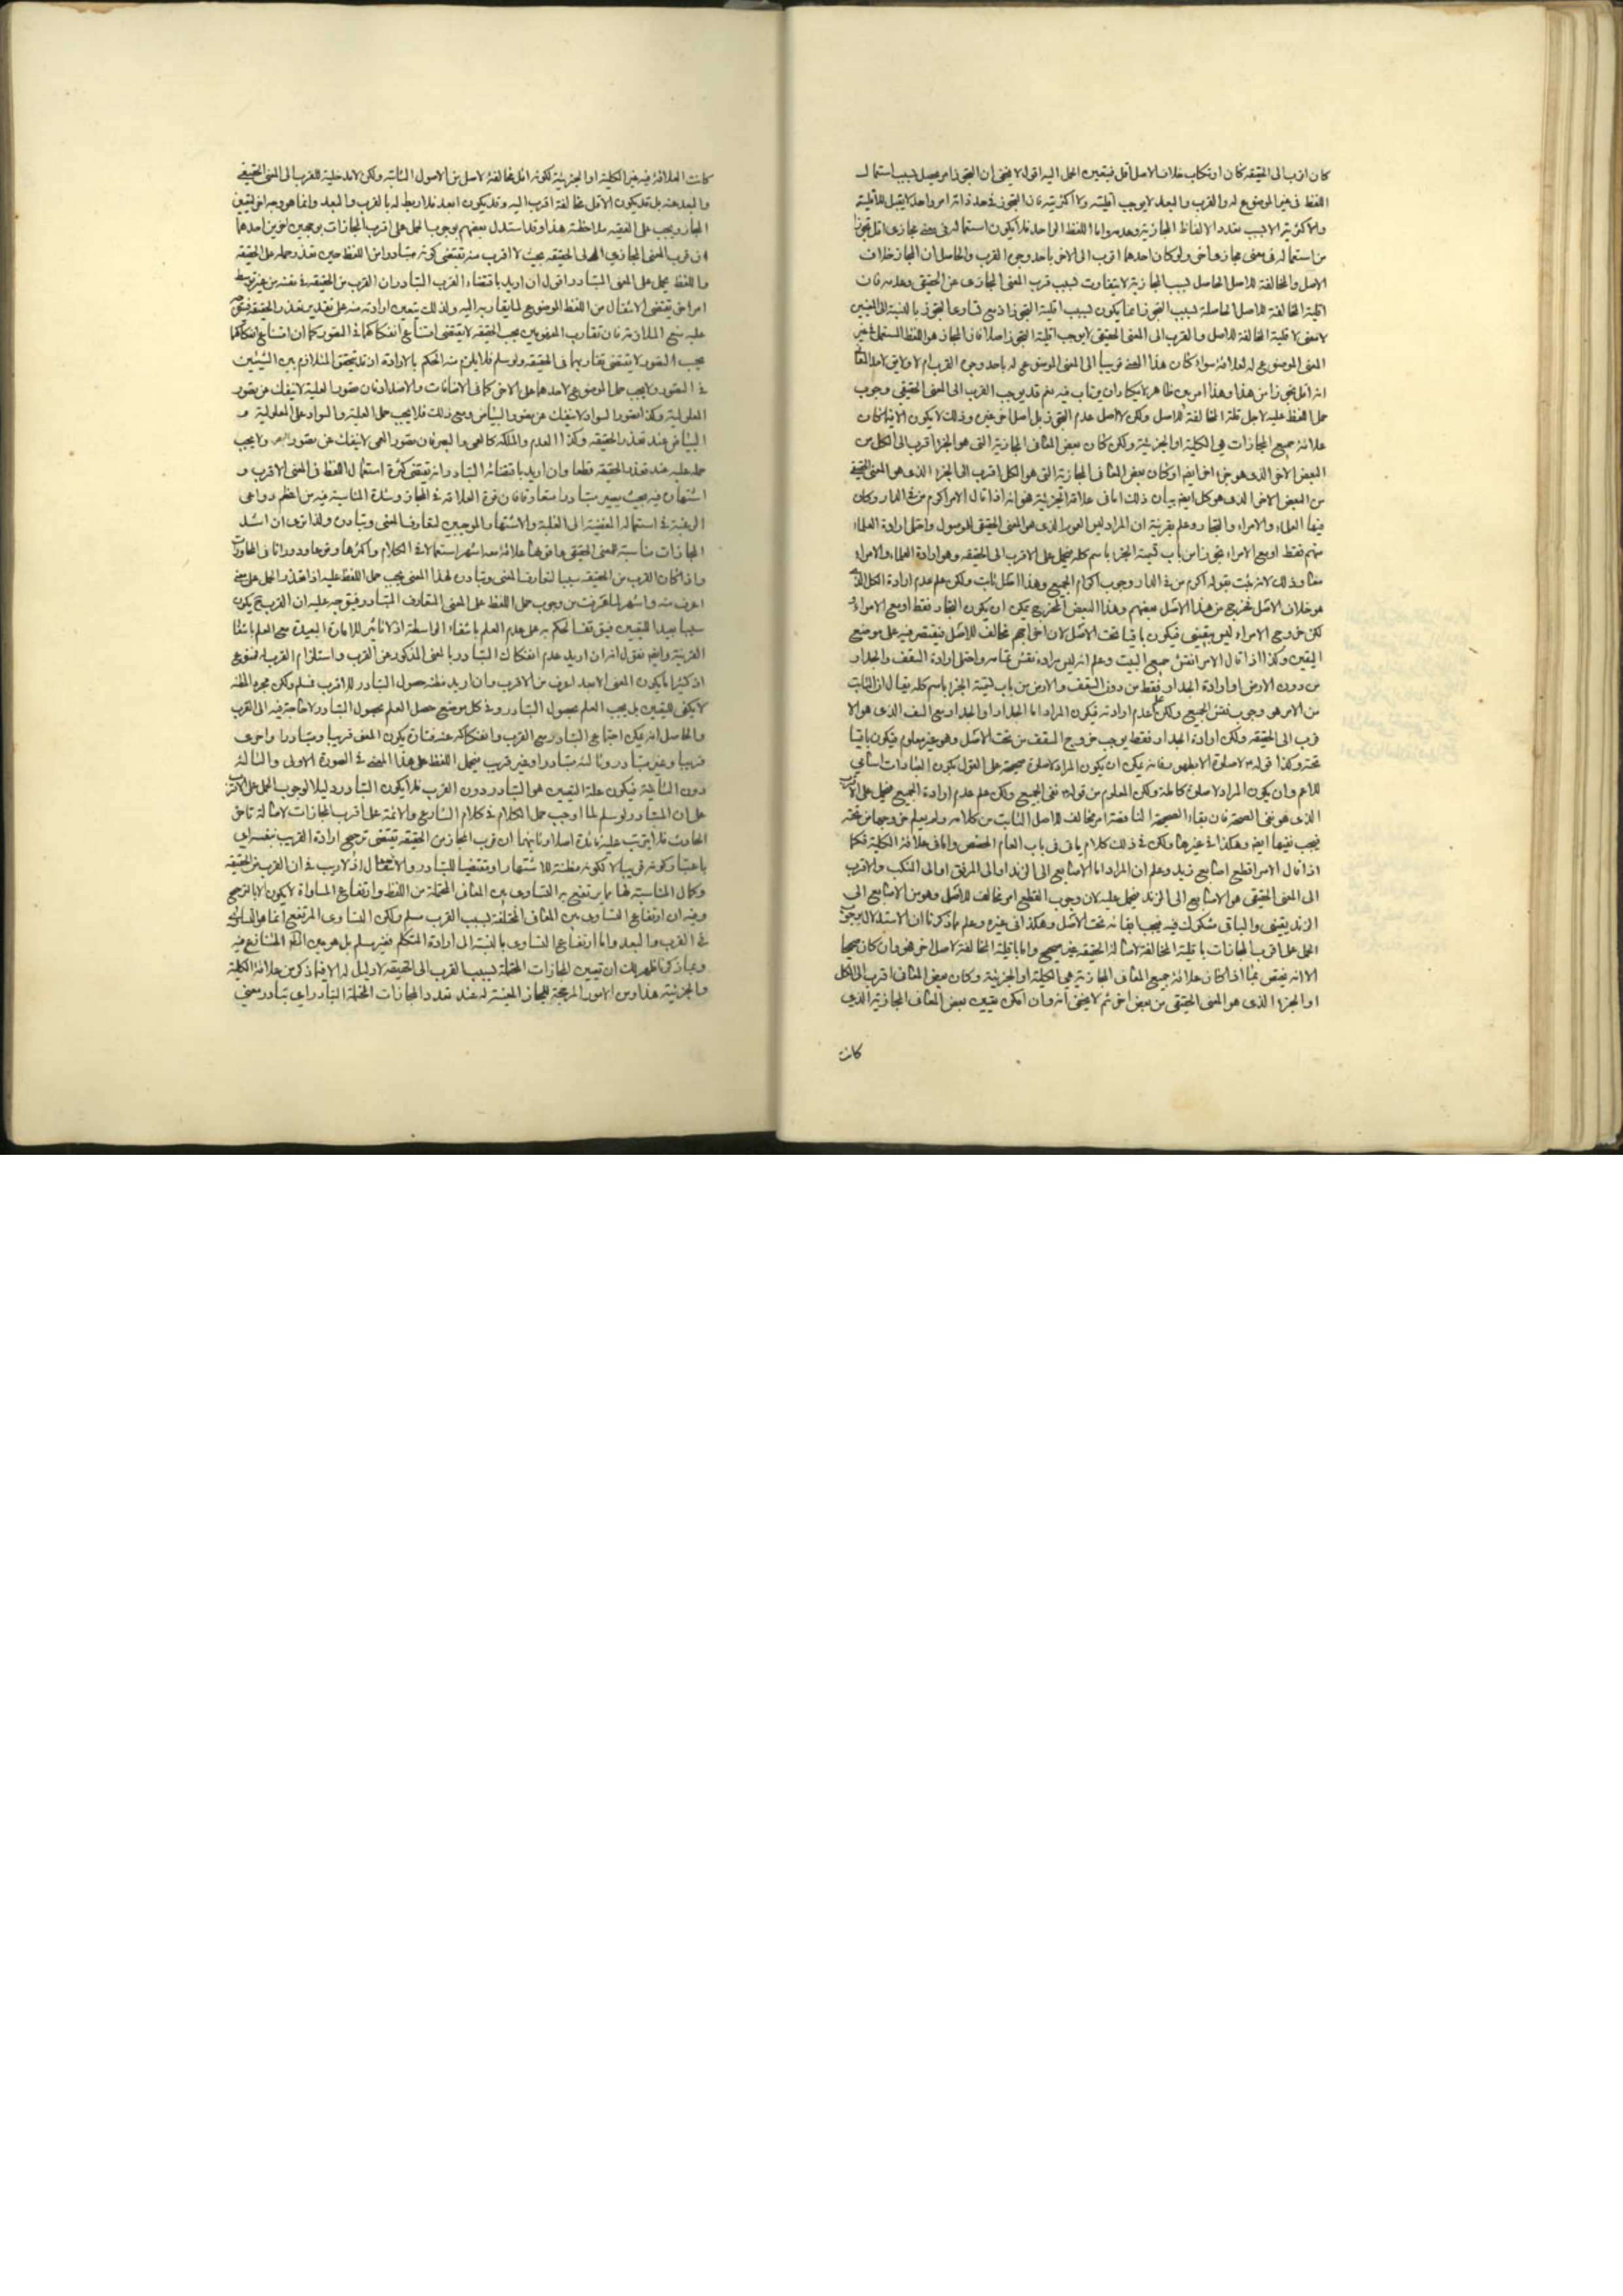 كان اقرب الى الحقيقة كان ارتكاب خلاف الاصل اقل فيتعين الحمل اليه اقول لا يخفى ان التجوز امر يحصل بسبب استعمال
اللفظ فى غير الموضوع له والقرب والبعد لا يوجب اقليته ولا اكثريته فان التجوز فى حد ذاته امر واحد لا يقبل الاقلية
والاكثرية الا بسبب تعدد الالفاظ المجازية وعدمه واما اللفظ الواحد فلا يكون استعماله فى معنى مجازى اقل تجوزا
من استعماله فى معنى مجازى اخر ولو كان احدهما اقرب الى الاخر باحد وجوه القرب والحاصل ان المجاز خلاف
الاصل والمخالفة للاصل الحاصل بسبب المجازية لا يتفاوت بسبب قرب المعنى المجازى عن الحقيقى وعدمه فان
اقلية المخالفة للاصل الحاصلة بسبب التجوز انما يكون بسبب اقلية التجوز اذ مع تساوى التجوز بالنسبة الى المعنيين
لا معنى لاقلية المخالفة للاصل والقرب الى المعنى الحقيقى لا يوجب اقلية التجوز اصلا فان المجاز هو اللفظ المستعمل فى غير
المعنى الموضوع له لعلاقة سواء كان هذا المعنى قريبا الى المعنى الموضوع له باحد وجوه القرب ام لا ولا يق لاحد
انه اقل تجوزا من هذا وهذا امر بين ظاهر لا يكاد ان يرتاب فيه نعم قد يوجب القرب الى المعنى الحقيقى وجوب
حمل اللفظ عليه لاجل قلة المخالفة للاصل ولكن لا لاصل عدم التجوز بل اصل اخر غيره وذلك لا يكون الا فيما كان
علاقة جميع المجازات هى الكلية او الجزئية ولكن كان بعض المعانى المجازية التى هو الجزء اقرب الى الكل من
البعض الاخر الذى هو جزء اخر ايضا او كان بعض المعانى المجازية التى هو الكل اقرب الى الجزء الذى هو المعنى الحقيقى
من البعض الاخر الذى هو كل ايضا بيان ذلك اما فى علاقة الجزئية فهو انه اذا قال الامر اكرم من فى الدار وكان
فيها العلماء والامراء والتجار وعلم بقرينة ان المراد ليس العموم الذى هو المعنى الحقيقى للموصول واحتمل ارادة العلماء
منهم فقط او مع الامراء تجوزا من باب تسمية الجزء باسم كله فيحمل على الاقرب الى الحقيقة وهو ارادة العلماء والامراء
معا وذلك لانه يثبت بقوله اكرم من فى الدار وجوب اكرام الجميع وهذا اصل ثابت ولكن علم عدم ارادة الكل الذى
هو خلاف الاصل فخرج من هذا الاصل بعضهم وهذا البعض المخرج يمكن ان يكون التجار فقط او مع الامراء
لكن خروج الامراء ليس بيقينى فيكون باقيا تحت الاصل لان اخراجهم مخالف للاصل فيقتصر فيه على موضع
اليقين وكذا اذا قال الامر انقش جميع البيت وعلم انه ليس مراده نقش تمامه واحتمل ارادة السقف والجدار
من دون الارض او ارادة الجدار فقط من دون السقف والارض من باب تسمية الجزء باسم كله يقال ان الثابت
من الامر هو وجوب نقش الجميع ولكن علم عدم ارادته فيكون المراد اما الجدار او الجدار مع السقف الذى هو الا
قرب الى الحقيقة ولكن ارادة الجدار فقط يوجب خروج السقف من تحت الاصل وهو غير معلوم فيكون باقيا
تحته وكذا قوله لا صلوة الا بطهور فانه يمكن ان يكون المراد لا صلوة صحيحة على القول بكون العبادات اسامى
للاعم وان يكون المراد لا صلوة كاملة ولكن المعلوم من قوله نفى الجميع ولكن علم عدم ارادة الجميع فيحمل على الاقرب
الذى هو نفى الصحة فان بقاء الصحيحة الناقصة امر مخالف للاصل الثابت من كلامه ولم يعلم خروجها من تحته
فيجب نفيها ايضا وهكذا فى غيرها ولكن فى ذلك كلام ياتى فى باب العام المخصص واما فى علاقة الكلية فكما
اذا قال الامر اقطع اصابع زيد وعلم ان المراد اما الاصابع الى الزند او الى المرفق او الى المنكب والاقرب
الى المعنى الحقيقى هو الاصابع الى الزند فيحمل عليه لان وجوب القطع امر مخالف للاصل وهو من الاصابع الى
الزند يقينى والباقى مشكوك فيه فيجب ابقائه تحت الاصل وهكذا فى غيره وعلم مما ذكرنا ان الاستدلال بوجوب
الحمل على اقرب المجازات باقلية المخالفة لاصالة الحقيقة غير صحيح واما باقلية المخالفة لاصل اخر فهو وان كان صحيحا
الا انه يختص بما اذا كان علاقة جميع المعانى المجازية هى الكلية او الجزئية وكان بعض المعانى اقرب الى الكل
او الجزء الذى هو المعنى الحقيقى من بعض اخر ثم لا يخفى انه وان امكن تعيين بعض المعانى المجازية الذى
كانت
كانت العلاقة فيه غير الكلية او الجزئية لكونه اقل مخالفة لاصل من الاصول الثابتة ولكن لا مدخلية للقرب الى المعنى الحقيقى
والبعد عنه بل قد يكون الاقل مخالفة اقرب اليه وقد يكون ابعد فلا ربط له بالقرب والبعد وانما هو وجه اخر لتعيين
المجاز ويجب على الفقيه ملاحظته هذا وقد استدل بعضهم بوجوب الحمل على اقرب المجازات بوجهين اخرين احدهما
ان قرب المعنى المجازى الى الحقيقة بحيث لا اقرب منه تقتضى كونه متبادرا من اللفظ حين تعذر حمله على الحقيقة
واللفظ يحمل على المعنى المتبادر اقول ان اريد باقتضاء القرب التبادر ان القرب من الحقيقة فى نفسه من غير توسط
امر اخر تقتضى الانتقال من اللفظ الموضوع لما يقاربه اليه ولذلك يتعين ارادته منه على تقدير تعذر الحقيقة فيتوجه
عليه منع الملازمة فان تقارب المفهومين بحسب الحقيقة لا يقتضى امتناع انفكاكهما فى التصور كما ان امتناع انفكاكهما
بحسب التصور لا يقتضى تقاربهما فى الحقيقة ولو سلم فلا يلزم منه الحكم بالارادة اذ قد يتحقق التلازم بين الشيئين
فى التصور ولا يجب حمل الموضوع لاحدهما على الاخر كما فى الاضافات والاضداد فان تصور العلية لا ينفك عن تصور
المعلولية وكذا تصور السواد لا ينفك عن تصور البياض ومع ذلك فلا يجب حمل العلية والسواد على المعلولية و
البياض عند تعذر الحقيقة وكذا العدم والملكة كالعمى والبصر فان تصور العمى لا ينفك عن تصور البصر ولا يجب
حمله عليه عند تعذر الحقيقة قطعا وان اريد باقتضائه التبادر انه تقتضى كثرة استعمال اللفظ فى المعنى الاقرب و
اشتهاره فيه بحيث يصير متبادرا متعارفا فان قوة العلاقة فى المجاز وشدة المناسبة فيه من اعظم دواعى
الرغبة فى استعماله المفضية الى الغلبة والاشتهار الموجبين لتعارف المعنى وتبادره ولذا ترى ان اشد
المجازات مناسبة للمعنى الحقيقى واقواها علاقة معه اشهر استعمالا فى الكلام واكثرها وقوعا ودورانا فى المحاورات
واذا كان القرب من الحقيقة سببا لتعارف المعنى وتبادره لهذا المعنى يجب حمل اللفظ عليه اذا تعذر الحمل على معنى
اعرف منه واشهر لما عرفت من وجوب حمل اللفظ على المعنى المتعارف المتبادر فيتوجه عليه ان القرب ح يكون
سببا بعيدا للتعيين فيتوقف الحكم به على عدم العلم بانتفاء الواسطة اذ لا تاثير للامارة البعيدة مع العلم بانتفاء
القريبة وايضا نقول انه ان اريد عدم انفكاك التبادر بالمعنى المذكور عن القرب واستلزام القرب له فممنوع
اذ كثيرا ما يكون المعنى الابعد اعرف من الاقرب وان اريد مظنة حصول التبادر للاقرب فمسلم ولكن مجرد المظنة
لا يكفى للتعيين بل يجب العلم بحصول التبادر وفى كل موضع حصل العلم بحصول التبادر لا حاجة فيه الى القرب
والحاصل انه يمكن اجتماع التبادر مع القرب وانفكاكه عنه فتارة يكون المعنى قريبا ومتبادرا واخرى
قريبا وغير متبادر وثالثة متبادرا وغير قريب فيحمل اللفظ على هذا المعنى فى الصورة الاولى والثالثة
دون الثانية فيكون علة التعيين هو التبادر دون القرب فلا يكون التبادر دليلا لوجوب الحمل على الاقرب
على ان المتبادر لو سلم لما اوجب حمل الكلام فى كلام الشارع والائمة على اقرب المجازات لاصالة تاخر
الحادث فلا يترتب عليه فائدة اصلا وثانيهما ان قرب المجاز من الحقيقة تقتضى ترجيح ارادة القريب بنفسه اى
باعتبار كونه قريبا لا لكونه مظنة للاشتهار او مقتضيا للتبادر والانتقال اذ لا ريب فى ان القرب من الحقيقة
وكمال المناسبة لها مما يرتفع به التساوى بين المعانى المحتملة من اللفظ وارتفاع المساواة لا يكون الا بالترجيح
وفيه ان ارتفاع التساوى بين المعانى المختلفة بسبب القرب مسلم ولكن التساوى المرتفع انما هو التساوى
فى القرب والبعد واما ارتفاع التساوى بالنسبة الى ارادة المتكلم فغير مسلم بل هو عين المتنازع فيه
ومما ذكرنا ظهر لك ان تعيين المجازات المحتملة بسبب القرب الى الحقيقة لا دليل له الا فيما ذكر من علاقة الكلية
والجزئية هذا ومن الامور المرجحة للمجاز المعينة له عند تعدد المجازات المحتملة التبادر اى تبادر معنى